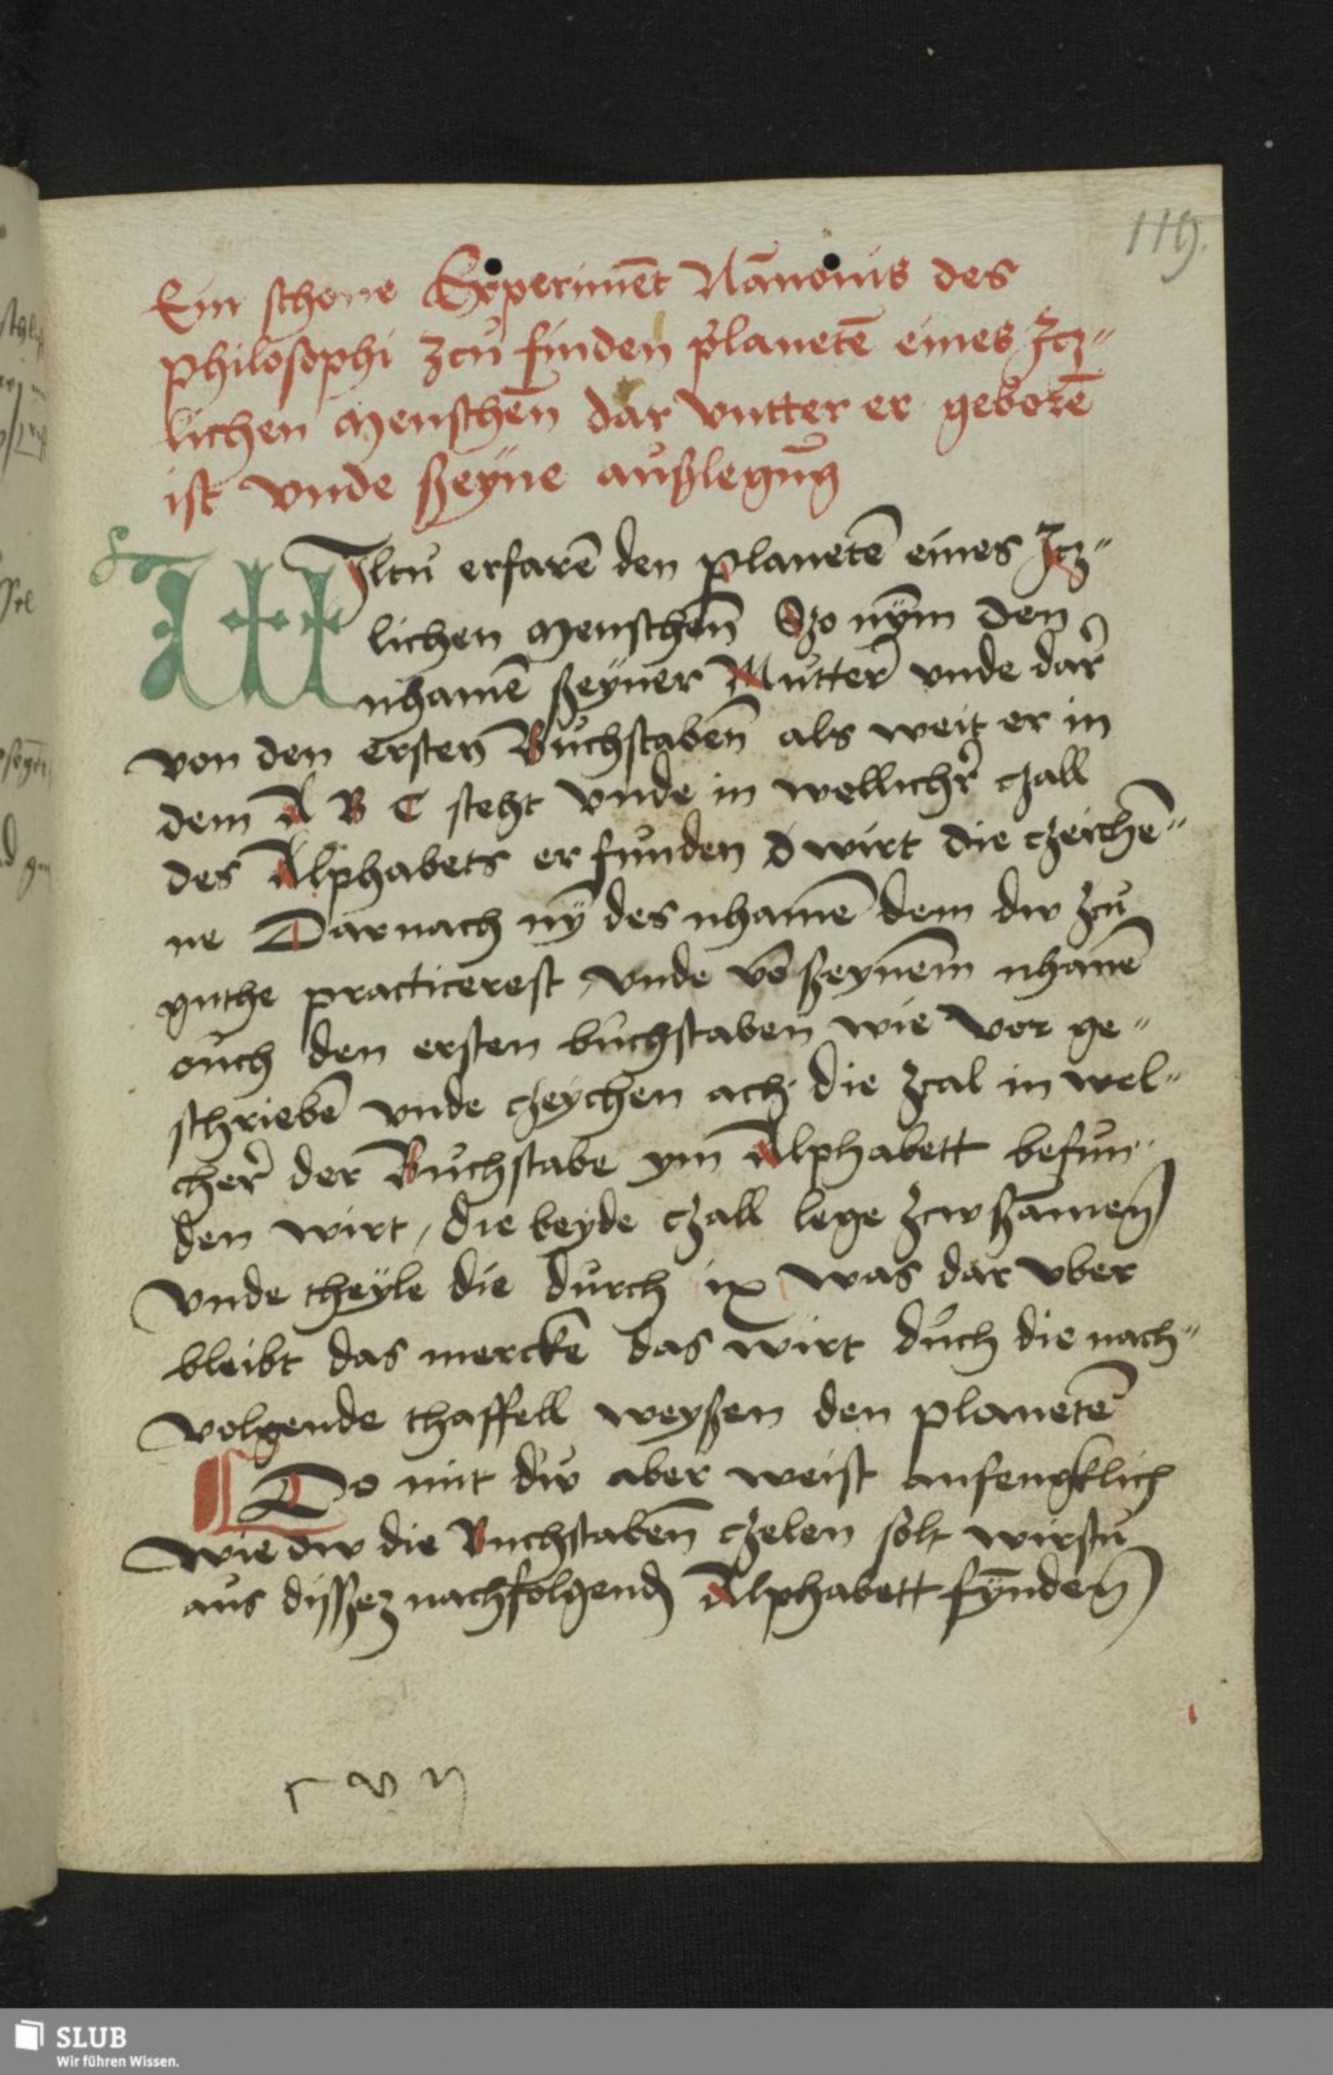 119.
Ein schone Experimēt Nānonis des
philosophi zcu finden planetē eines Itz„
lichen menschen dar vntter er geborē
ist vnde ßeyne außlegūg
Wiltu erfarē den planetē eines Itz„
lichen menschenn Szo nÿm den
nhamē ßeyner Mutter vnde dar
von den ersten Buchstaben als weit er in
dem A B C steht vnde in wellicher czall
des Alphabets erfunden d wirt die czeichē„
ne Darnach nÿ des nhamē dem dw zcu
guthe practicerest vnde vō ßeynem nhamē
ouch den ersten buchstaben wie vor ge„
schriebē vnde czeychen ach die zcal in wel„
cher der Buchstabe ym Alphabett befun„
den wirt, die beyde czall lege zcwßamen
vnde theyle die durch ix was dar vber
bleibt das merckē das wirt duch die nach„
volgende thaffell weyßen den planetē
Do mit dw aber weist anfengklich
wie dw die Buchstaben czelen solt wirstu
aus dißez nachfolgend Alphabett fynden
SLUB
Wir führen Wissen.